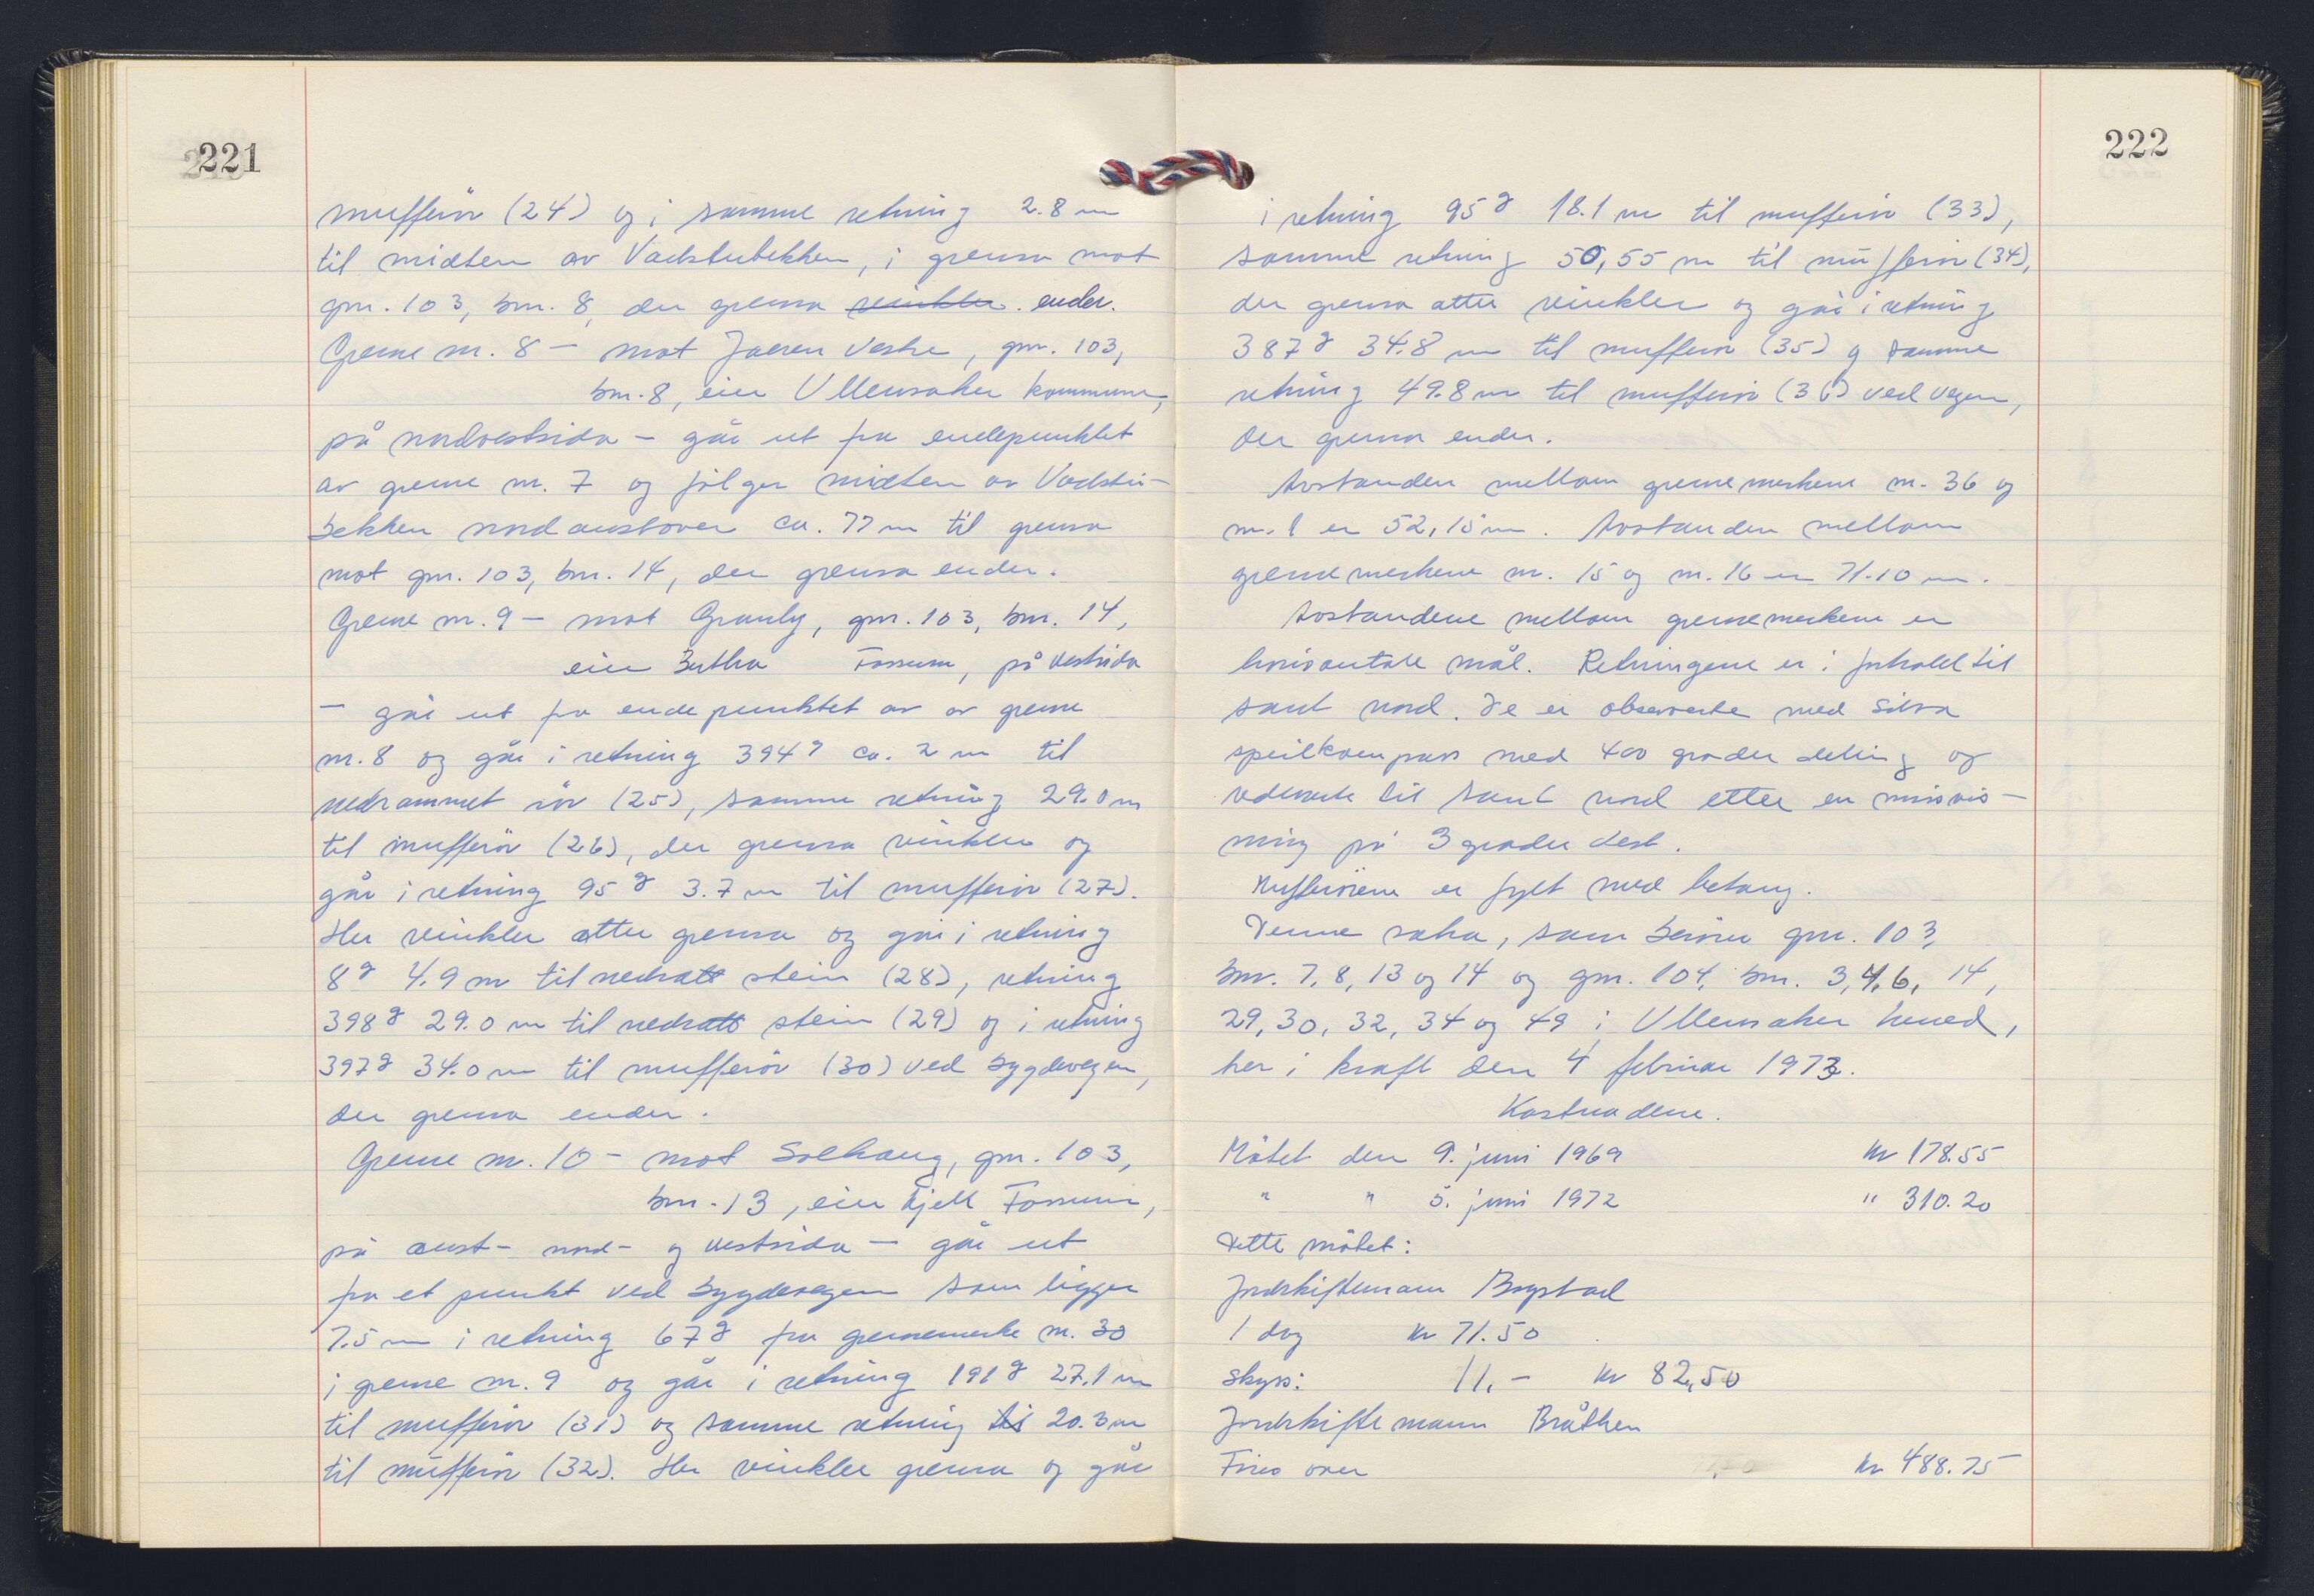 221
mufferör (24) og i samme retning 2.8 m
til midten av Vadstubekken, i grensa mot
gnr. 103, bnr. 8, der grensa vinkler. ender.
Grense nr. 8 - mot Jaeren vestre, gnr. 103,
bnr. 8, eier Ullensaker kommune,
på nordvestsida - går ut fra endepunktet
av grense nr. 7 og følger midten av Vadstu-
bekken nordaustover ca. 77 m til grensa
mot gnr. 103, bnr. 14, der grensa ender.
Grense nr. 9 - mot Granly, gnr. 103, bnr. 14,
eier Bertha Fossum, på vestsida
- går ut fra endepunktet av av grense
nr. 8 og går i retning 394g ca. 2 m til
nedrammet rör (25), samme retning 29.0 m
til mufferör (26), der grensa vinkler og
går i retning 95g 3.7 m til mufferör (27).
Her vinkler atter grensa og går i retning
8g 4.9 m til nedsatt stein (28), retning
398g 29.0 m til nedsatt stein (29) og i retning
397g 34.0 m til mufferör (30) ved bygdevegen,
der grensa ender.
Grense nr. 10 - mot Solhaug, gnr. 103,
bnr. 13, eier Kjell Fossum,
på aust- nord- og vestsida - går ut
fra et punkt ved bygdevegen som ligger
7.5 m i retning 67g fra grensemerke nr. 30
i grense nr. 9 og går i retning 191g 27.1 m
til mufferör (31) og samme retning til 20.3 m
til mufferör (32). Her vinkler grensa og går
222
i retning 95g 18.1 m til mufferör (33),
samme retning 50,55 m til mufferör (34),
der grensa atter vinkler og går i retning
387g 34.8 m til mufferör (35) og samme
retning 49.8 m til mufferör (36) ved vegen,
der grensa ender.
Avstanden mellom grensemerkene nr. 36 og
nr. 1 er 52,15 m. Avstanden mellom
grensemerkene nr. 15 og nr. 16 er 71.10 m.
Avstandene mellom grensemerkene er
horisontale mål. Retningene er i forhold til
sant nord. De er observerte med Silva
speilkompass med 400 grader deling og
reduserte til sant nord etter en misvis-
ning på 3 grader vest.
Mufferörene er fylt med betong.
Denne saka, som berörer gnr. 103,
bnr. 7, 8, 13 og 14 og gnr. 104, bnr. 3, 4, 6, 14,
29, 30, 32, 34 og 49 i Ullensaker herred,
trer i kraft den 4 februar 1973.
Kostnadene.
Mötet den 9. juni 1969 kr 178.55
" " 5. juni 1972 " 310.20
Dette mötet:
Jordskiftemann Bogstad
1 dag kr 71.50
Skyss: 11.- kr 82,50
Jordskiftemann Bråthen
Föres over kr 488.75